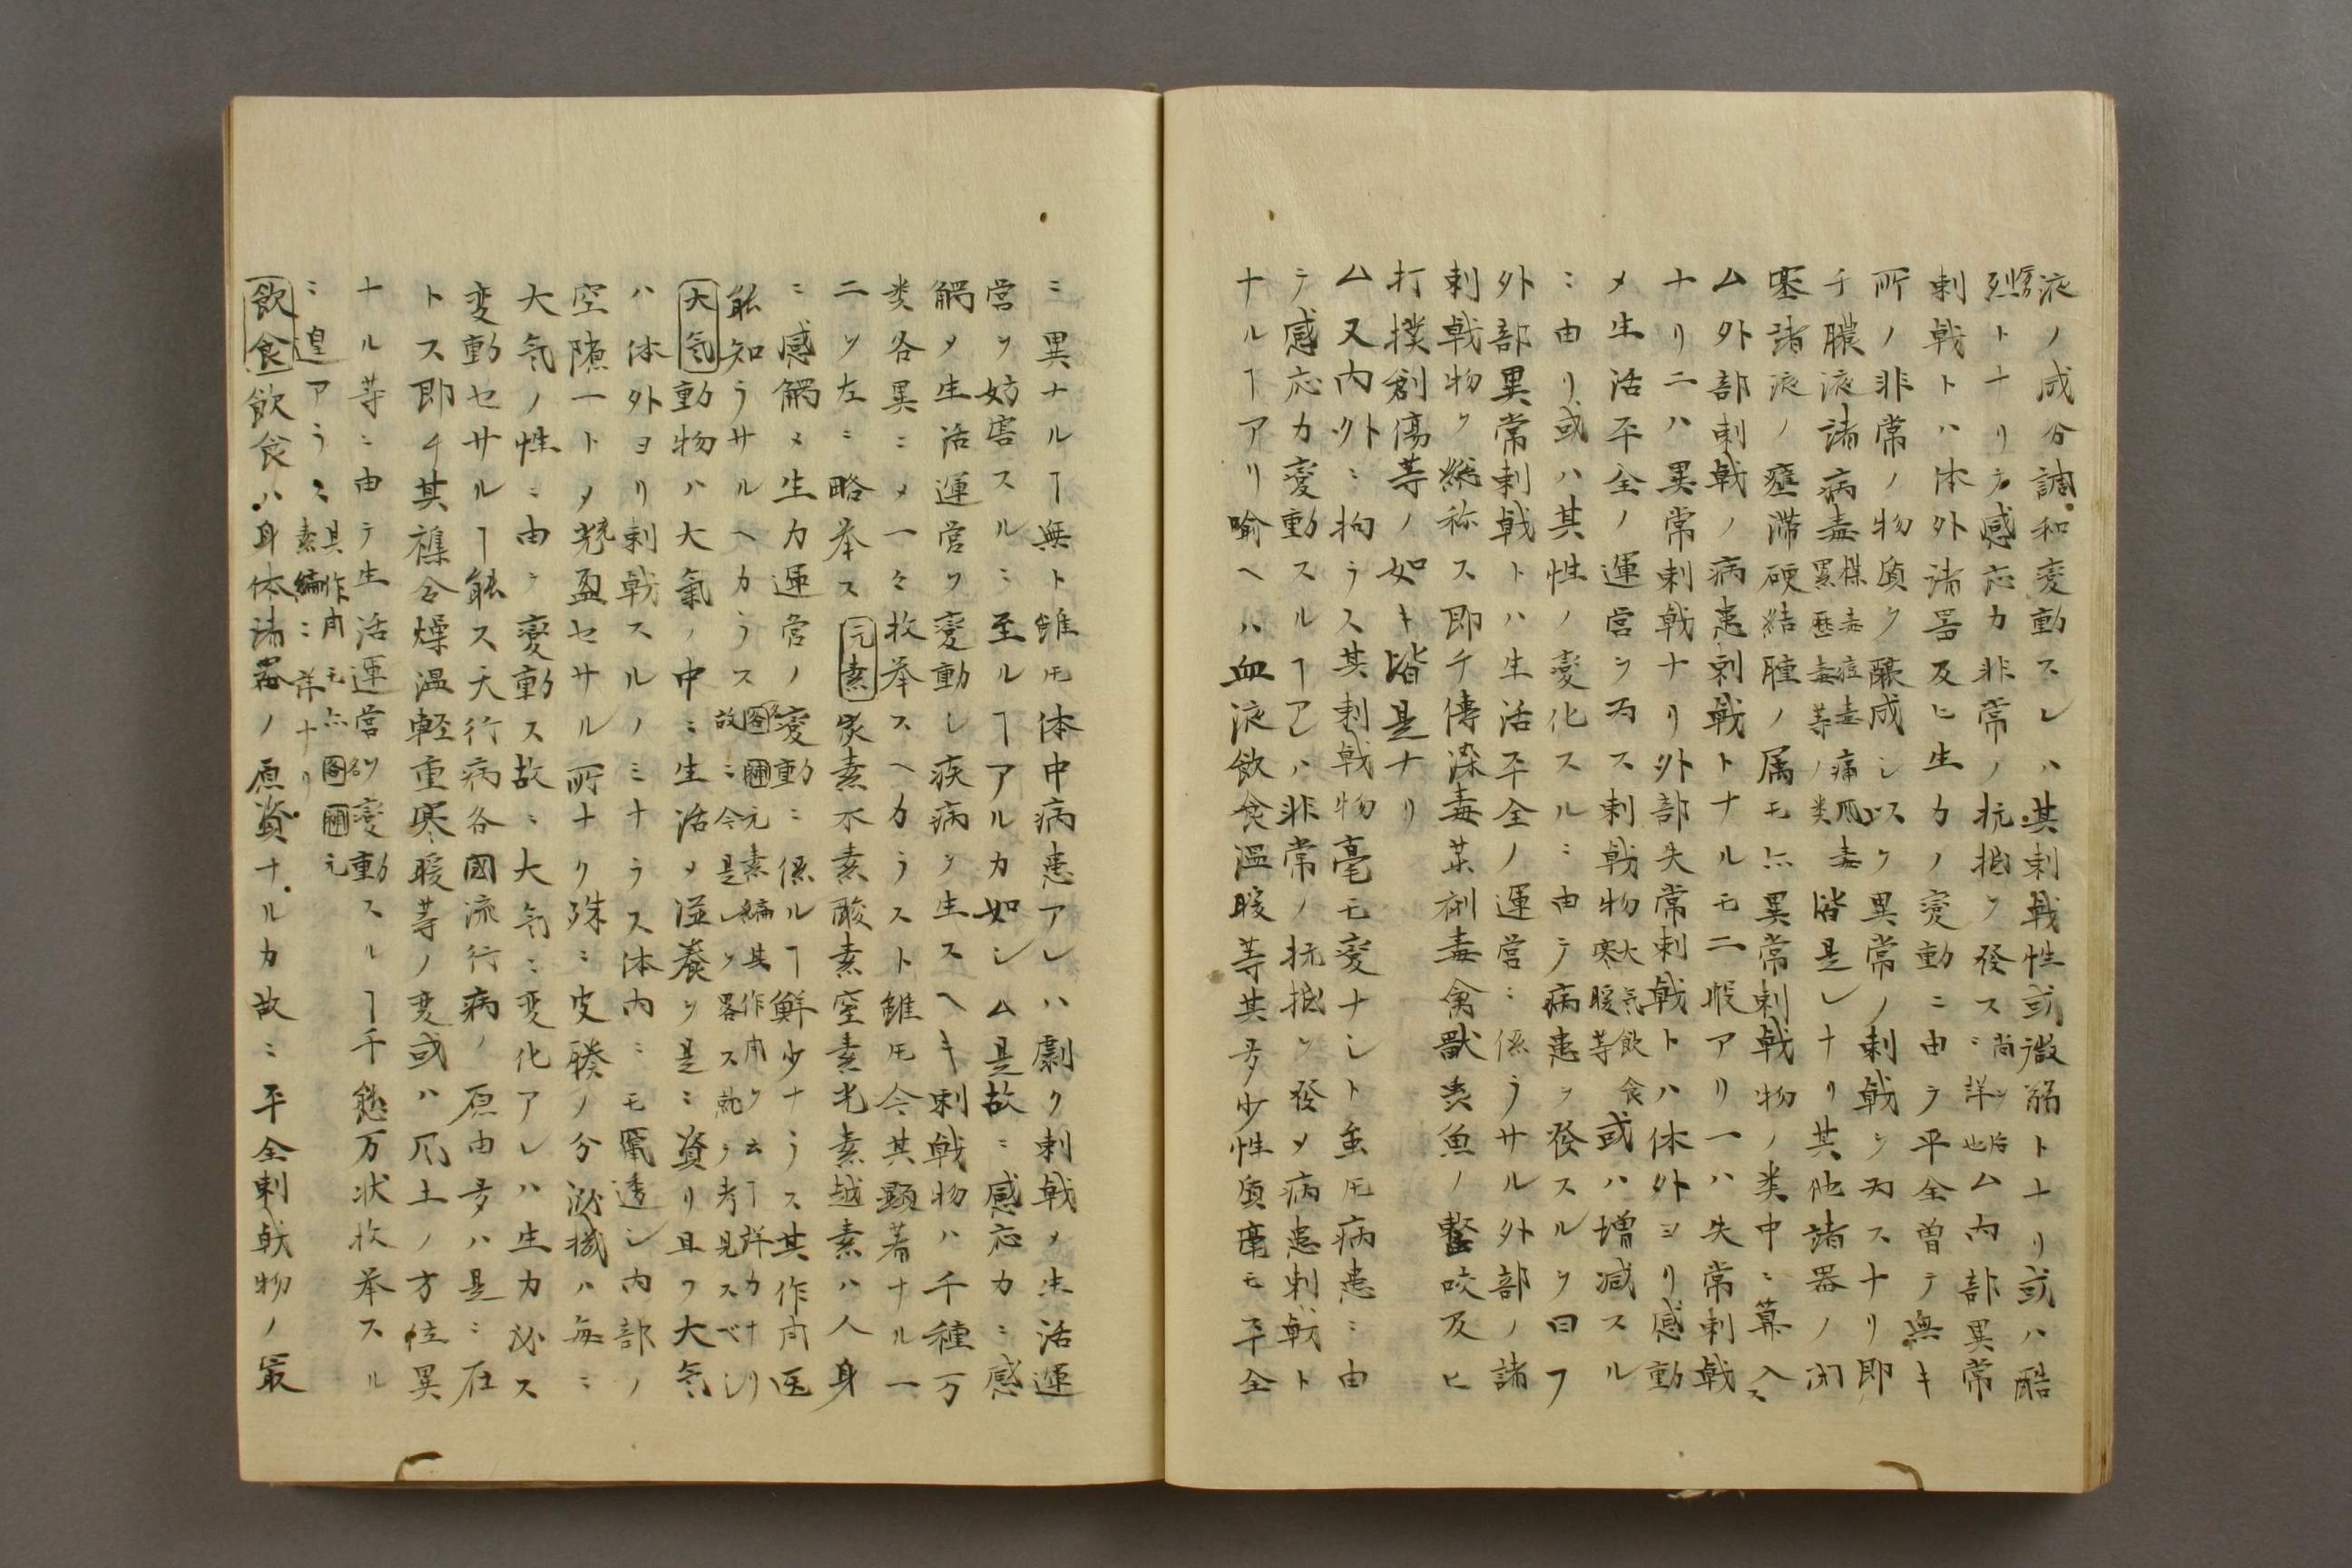 液ノ成分調和変動スレハ其刺戟性或微弱トナリ或ハ酷
烈トナリテ感応力非常ノ抗抵ヲ発ス尚後ニ詳也ム内部異常
刺戟トハ体外諸器及ヒ生力ノ変動ニ由テ平全曽テ無キ
所ノ非常ノ物質ヲ醸成シ以テ異常ノ刺戟ヲ為スナリ即
チ膿液諸病毒黴毒痘毒痛風毒瘰癧毒等ノ類皆是レナリ其他諸器ノ閉
塞諸液ノ壅滞硬結腫ノ属モ亦異常刺戟物ノ类中ニ算入ス
ム外部刺戟ノ病患刺戟トナルモ二般アリ一ハ失常刺戟
ナリ二ハ異常刺戟ナリ外部失常刺戟トハ体外ヨリ感動
メ生活平全ノ運営ヲ為ス刺戟物大気飲食寒暖等或ハ増減スル
ニ由リ或ハ其性ノ変化スルニ由テ病患ヲ発スルヲ曰フ
外部異常刺戟トハ生活平全ノ運営ニ係ラサル外部ノ諸
刺戟物ヲ総称ス即チ傳染毒薬剤毒禽獣虫魚ノ螫咬及ヒ
打撲創傷等ノ如キ皆是ナリ
ム又内外ニ拘ラス其刺戟物毫モ変ナシト虽𪜈病患ニ由
テ感応力変動スルヿアレハ非常ノ抗抵ヲ発メ病患刺戟ト
ナルヿアリ喩ヘハ血液飲食温暖等其多少性質毫モ平全
ニ異ナルヿ無ト雖𪜈体中病患アレハ劇ク刺戟メ生活運
営ヲ妨害スルニ至ルヿアルカ如シム是故ニ感応力ニ感
觸メ生活運営ヲ変動シ疾病ヲ生スヘキ刺戟物ハ千種万
类各異ニメ一々枚挙スヘカラスト雖𪜈今其顕著ナル一
二ヲ左ニ略挙ス元素炭素水素酸素窒素光素越素ハ人身
ニ感觸メ生力運営ノ変動ニ係ルヿ鮮少ナラス其作用医
能知ラサルヘカラス元素編其作用ヲ云ヿ詳カナリ故ニ今是レヲ畧ス就テ考見スベシ
大気動物ハ大氣ノ中ニ生活メ滋養ヲ是ニ資リ且ツ大気
ハ体外ヨリ刺戟スルノミナラス体内ニモ竄透シ内部ノ
空隙一トメ充盈セサル所ナク殊ニ皮膚ノ分泌機ハ毎ニ
大気ノ性ニ由テ変動ス故ニ大気ニ変化アレハ生力必ス
変動セサルヿ能ス天行病各國流行病ノ原由多ハ是ニ在
トス即チ其襍合燥湿軽重寒暖等ノ変或ハ風土ノ方位異
ナル等ニ由テ生活運営ヲ変動スルヿ千態万状枚挙スル
ニ遑アラス其作用モ亦元素編ニ詳ナリ
飲食飲食ハ身体諸器ノ原資ナルカ故ニ平全刺戟物ノ最